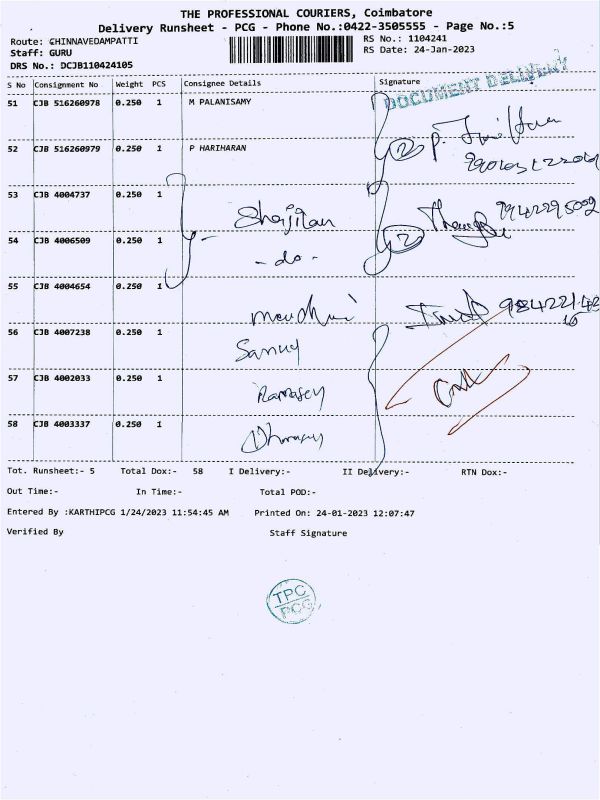 THE PROFESSIONAL COURIERS, Coimbatore
Delivery Runsheet - PCG - Phone No.:0422-3505555 - Page No.:5
Route: CHINNAVEDAMPATTI
RS No.: 1104241
Staff: GURU
RS Date: 24-Jan-2023
DRS No.: DCJB110424105
S No Consignment No Weight PCS Consignee Details Signature
DOCUMENT DELIVERY
51 CJB 516260978 0.250 1 M PALANISAMY
52 CJB 516260979 0.250 1 P HARIHARAN
2
53 CJB 4004737 0.250 1
Shajilan
9942295002
54 CJB 4006509 0.250 1
2
- do -
55 CJB 4004654 0.250 1
56 CJB 4007238 0.250 1
57 CJB 4002033 0.250 1
Ramasey
58 CJB 4003337 0.250 1
Tot. Runsheet:- 5 Total Dox:- 58 I Delivery:- II Delivery:- RTN Dox:-
Out Time:- In Time:- Total POD:-
Entered By :KARTHIPCG 1/24/2023 11:54:45 AM Printed On: 24-01-2023 12:07:47
Verified By Staff Signature
TPC
PCG